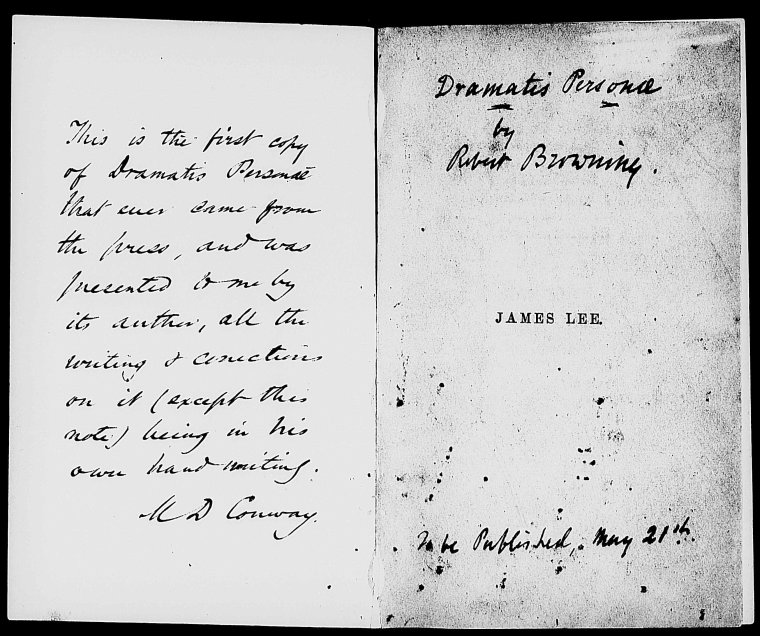 This is the first copy
of Dramatis Personæ
that ever came from
the press, and was
presented to me by
its author, all the
writing & corrections
on it (except this
note) being in his
own hand writing.
M D Conway.
Dramatis Personæ
by
Robert Browning.
JAMES LEE.
To be Published, May 21st.